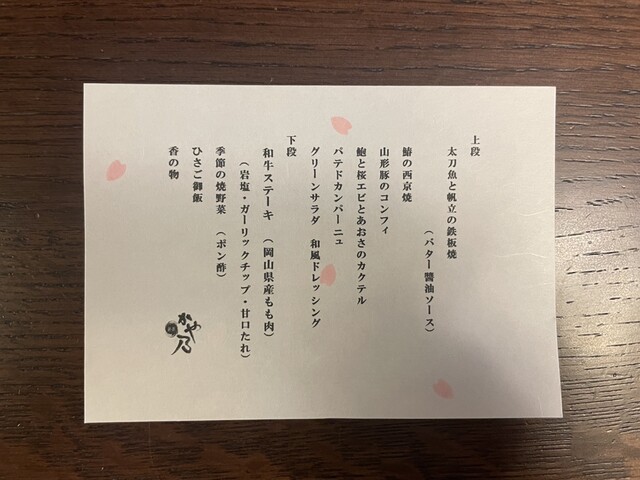 上段
太刀魚と帆立の鉄板焼
（バター醬油ソース）
鰆の西京焼
山形豚のコンフィ
鮑と桜エビとあおさのカクテル
パテドカンパーニュ
グリーンサラダ　和風ドレッシング
下段
和牛ステーキ　（岡山県産もも肉）
（岩塩・ガーリックチップ・甘口たれ）
季節の焼野菜　（ポン酢）
ひさご御飯
香の物